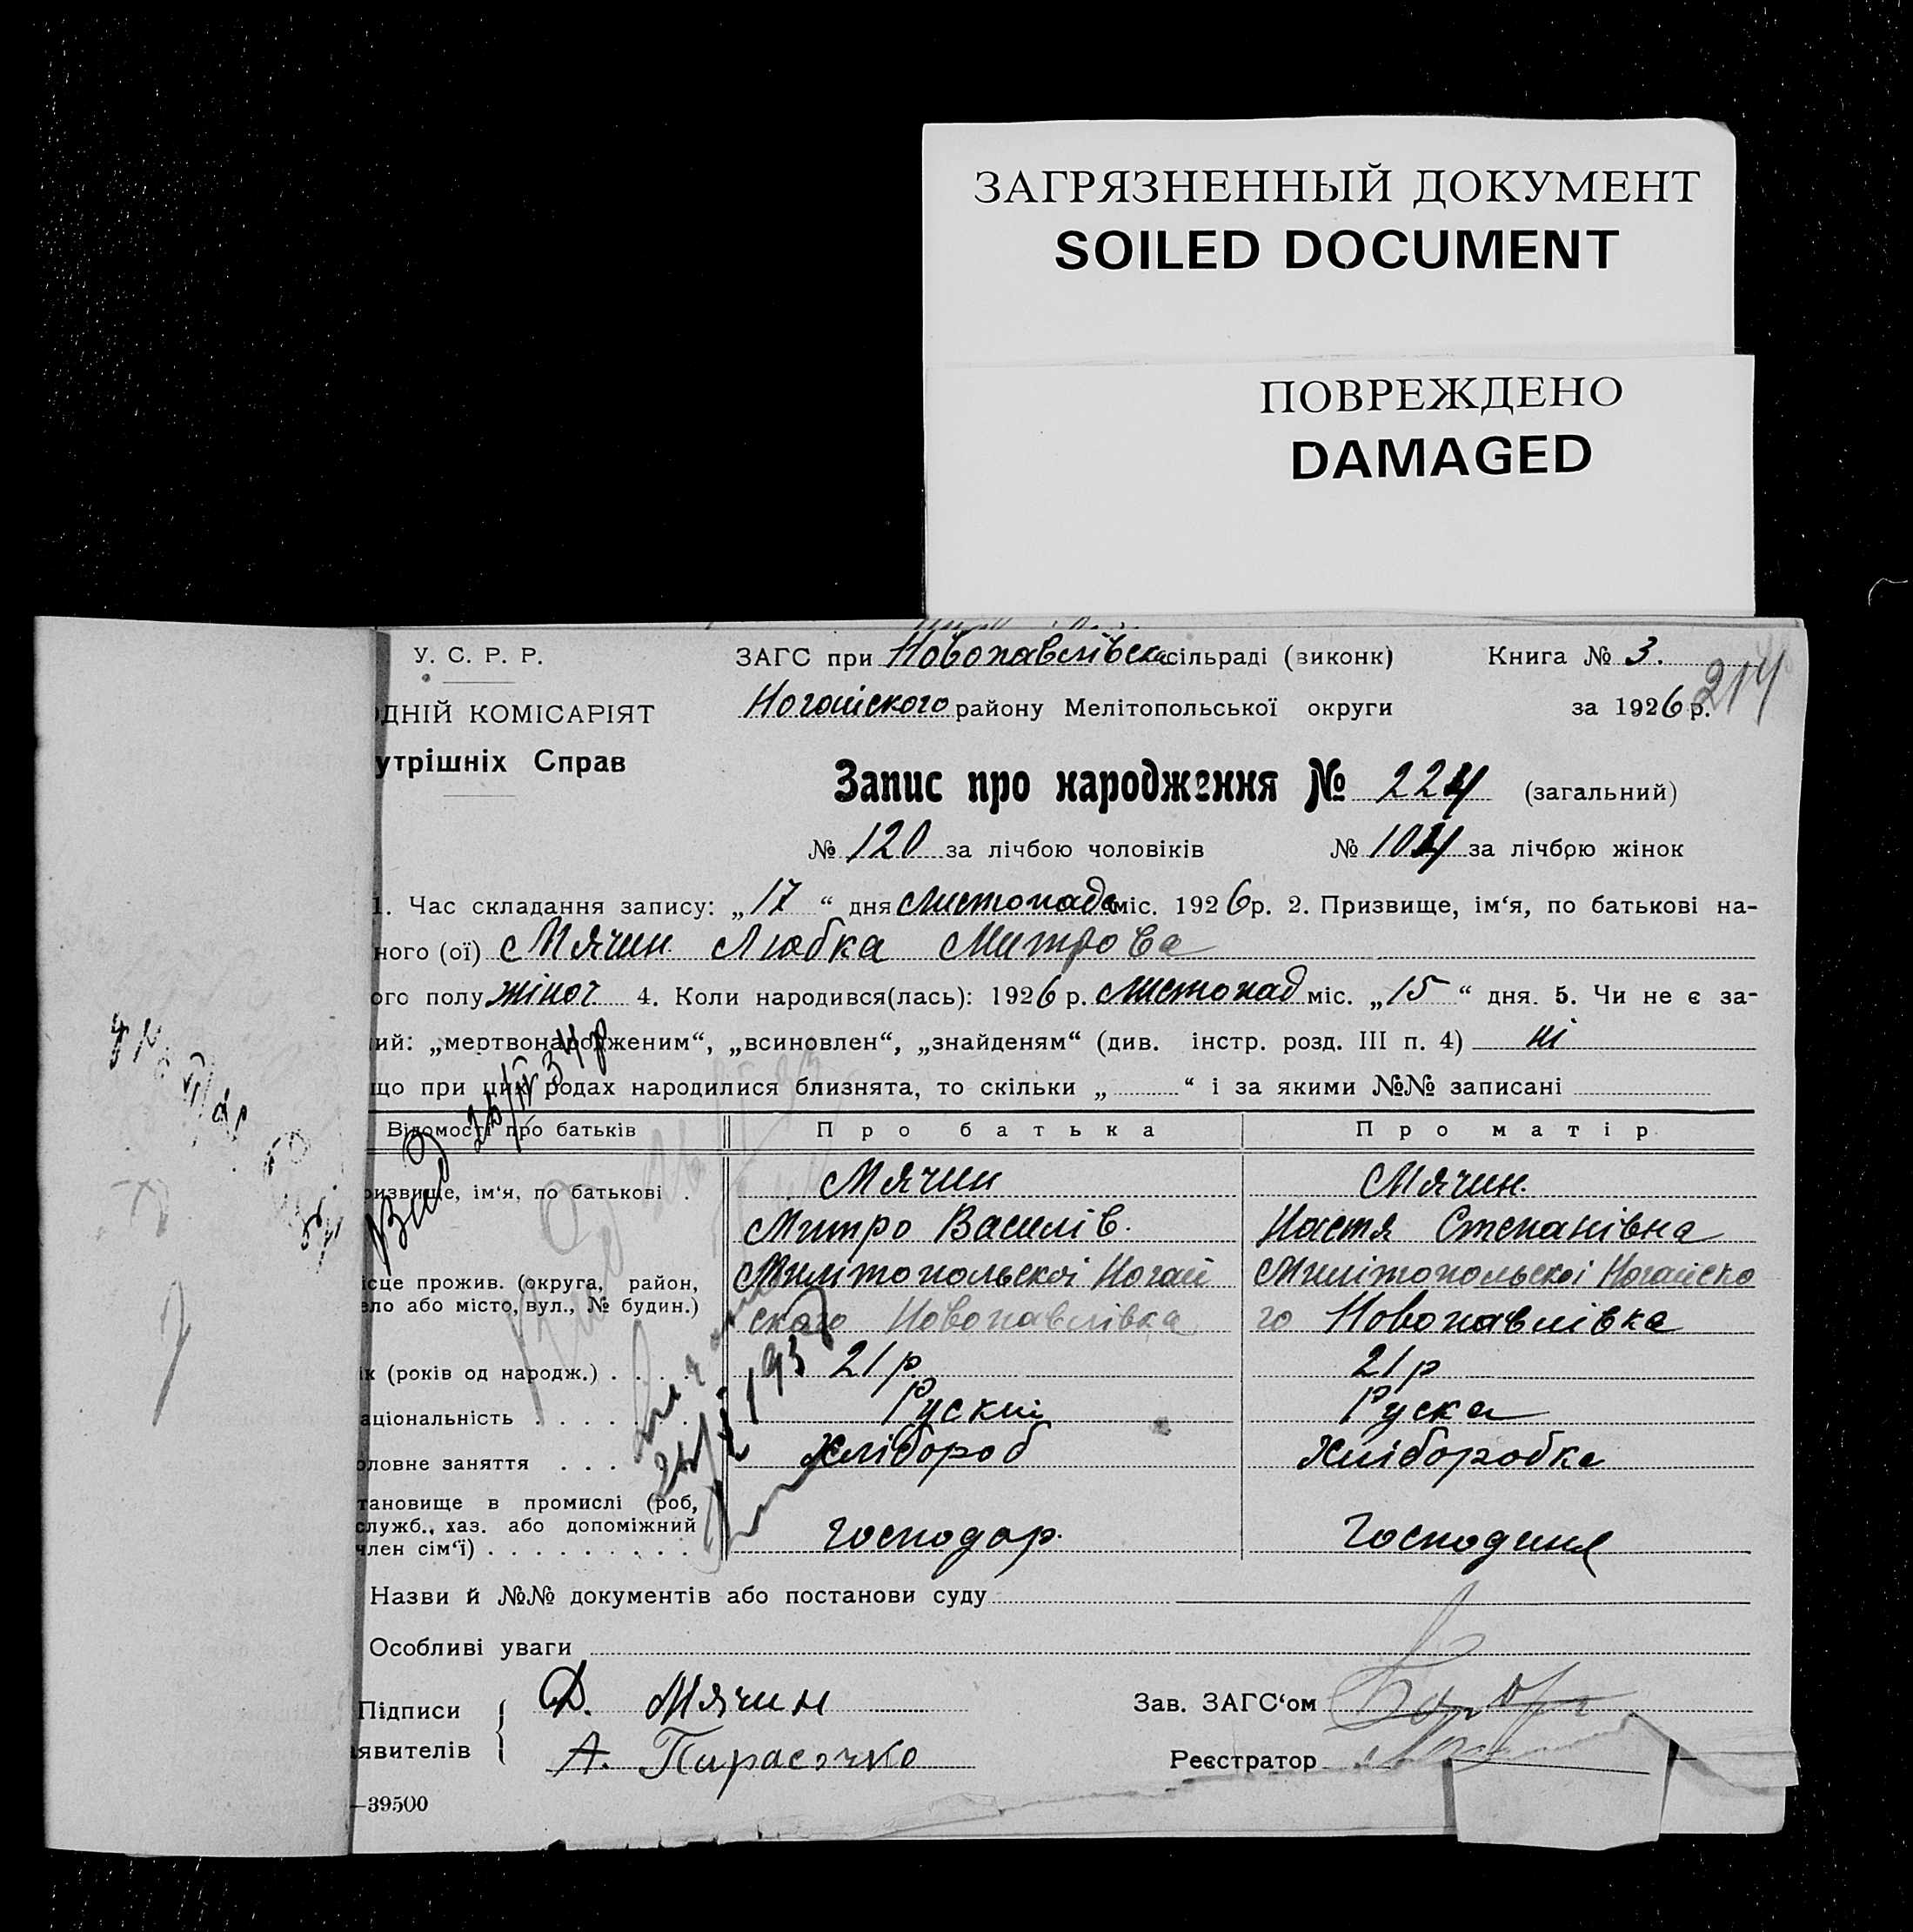 ЗАГРЯЗНЕННЫЙ ДОКУМЕНТ
SOILED DOCUMENT
ПОВРЕЖДЕНО
DAMAGED
У. С. Р. Р.
ЗАГС при Новопавлівськ сільраді (виконк)
Книга № 3.
214
ДНІЙ КОМІСАРІЯТ
Ногайского району Мелітопольської округи
за 1926 р.
утрішніх Справ
Запис про народження № 224 (загальний)
№ 120 за лічбою чоловіків № 104 за лічбою жінок
1. Час складання запису: „17“ дня листопада міс. 1926 р. 2. Призвище, ім‘я, по батькові на-
ного (ої) Мячин Любка Митрова
ого полу жіноч. 4. Коли народився(лась): 1926 р. листопад міс. „15“ дня. 5. Чи не є за-
ий: „мертвонародженим“, „всиновлен“, „знайденям“ (див. інстр. розд. III п. 4) ні
що при цих родах народилися близнята, то скільки „ “ і за якими №№ записані
Відомості про батьків
Про батька
Про матір
ризвище, ім‘я, по батькові .
Мячин
Мячин.
Митро Василів.
Настя Степанівна
ісце прожив. (округа, район,
ело або місто, вул., № будин.)
Милітопольскоі Ногай
ского Новопавлівка
Милітопольскоі Ногайско
го Новопавлівка
ік (років од народж.) . . . .
21 р
21 р
аціональність . . . . . . .
Руский
Руска
оловне заняття . . . .
Хлібороб
Хліборобка
тановище в промислі (роб,
служб., хаз. або допоміжний
член сім‘ї) . . . . . . . . .
господар.
Господиня
Вид 25/IV 34 р
Назви й №№ документів або постанови суду
Особливі уваги
Підписи
явителів
Д. Мячин
А. Парасочко
Зав. ЗАГС‘ом
Реєстратор
—39500